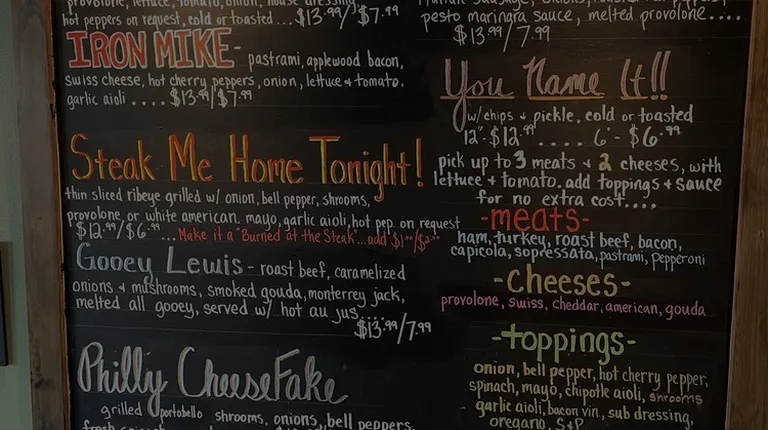 provolone, lettuce, tomato, onion, house dressing
hot peppers on request, cold or toasted... $13.99/$7.99
IRON MIKE - pastrami, applewood bacon,
swiss cheese, hot cherry peppers, onion, lettuce & tomato,
garlic aioli .... $13.99/$7.99
Steak Me Home Tonight!
thin sliced ribeye grilled w/ onion, bell pepper, shrooms,
provolone or white american. mayo, garlic aioli, hot pep. on request
$12.99/$6.99 ... Make it a "Burned at the Steak"...add
Gooey Lewis - roast beef, caramelized
onions & mushrooms, smoked gouda, monterrey jack,
melted all gooey, served w/ hot au jus.....
$13.99/7.99
Philly CheeseFake
grilled portobello shrooms, onions, bell peppers,
pesto marinara sauce, melted provolone....
$13.99/7.99
You Name It!!
w/chips & pickle, cold or toasted
12"-$12.99 .... 6"-$6.99
pick up to 3 meats & 2 cheeses, with
lettuce & tomato. add toppings & sauce
for no extra cost....
-meats-
ham, turkey, roast beef, bacon,
capicola, sopressata, pastrami, pepperoni
-cheeses-
provolone, swiss, cheddar, american, gouda
-toppings-
onion, bell pepper, hot cherry pepper,
spinach, mayo, chipotle aioli, shrooms
garlic aioli, bacon vin, sub dressing,
oregano, S&P